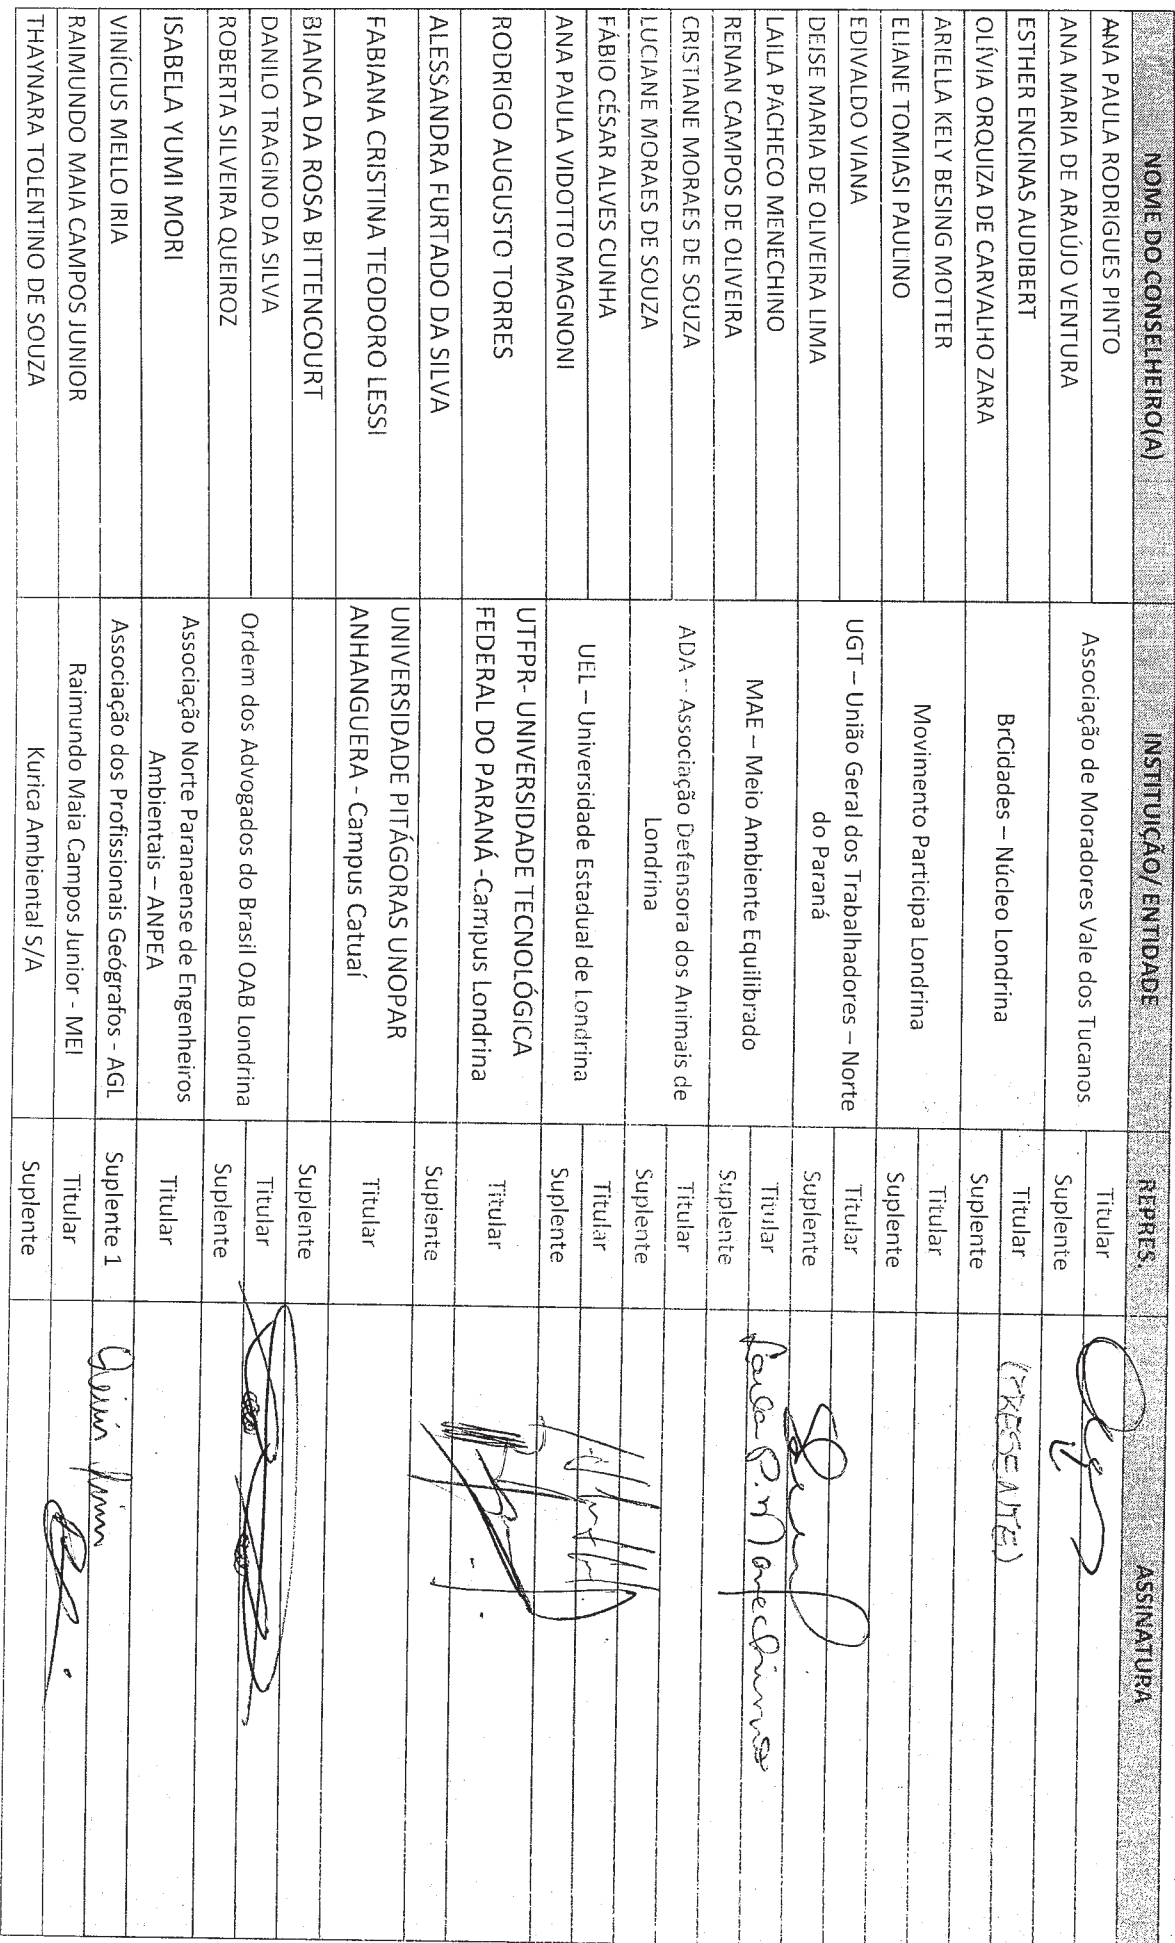 NOME DO CONSELHEIRO(A) INSTITUIÇÃO/ ENTIDADE REPRES. ASSINATURA
ANA PAULA RODRIGUES PINTO Associação de Moradores Vale dos Tucanos Titular
ANA MARIA DE ARAÚJO VENTURA Suplente
ESTHER ENCINAS AUDIBERT BrCidades – Núcleo Londrina Titular (PRESENTE)
OLÍVIA ORQUIZA DE CARVALHO ZARA Suplente
ARIELLA KELY BESING MOTTER Movimento Participa Londrina Titular
ELIANE TOMIASI PAULINO Suplente
EDIVALDO VIANA UGT – União Geral dos Trabalhadores – Norte Titular
DEISE MARIA DE OLIVEIRA LIMA do Paraná Suplente
LAILA PACHECO MENECHINO MAE – Meio Ambiente Equilibrado Titular Laila P. Menechino
RENAN CAMPOS DE OLIVEIRA Suplente
CRISTIANE MORAES DE SOUZA ADA – Associação Defensora dos Animais de Titular
LUCIANE MORAES DE SOUZA Londrina Suplente
FÁBIO CÉSAR ALVES CUNHA UEL – Universidade Estadual de Londrina Titular
ANA PAULA VIDOTTO MAGNONI Suplente
RODRIGO AUGUSTO TORRES UTFPR- UNIVERSIDADE TECNOLÓGICA Titular
FEDERAL DO PARANÁ -Campus Londrina
ALESSANDRA FURTADO DA SILVA Suplente
FABIANA CRISTINA TEODORO LESSI UNIVERSIDADE PITÁGORAS UNOPAR Titular
ANHANGUERA - Campus Catuaí
BIANCA DA ROSA BITTENCOURT Suplente
DANILO TRAGINO DA SILVA Ordem dos Advogados do Brasil OAB Londrina Titular
ROBERTA SILVEIRA QUEIROZ Suplente
ISABELA YUMI MORI Associação Norte Paranaense de Engenheiros Titular
Ambientais – ANPEA
VINÍCIUS MELLO IRIA Associação dos Profissionais Geógrafos - AGL Suplente 1
RAIMUNDO MAIA CAMPOS JUNIOR Raimundo Maia Campos Junior - MEI Titular
THAYNARA TOLENTINO DE SOUZA Kurica Ambiental S/A Suplente